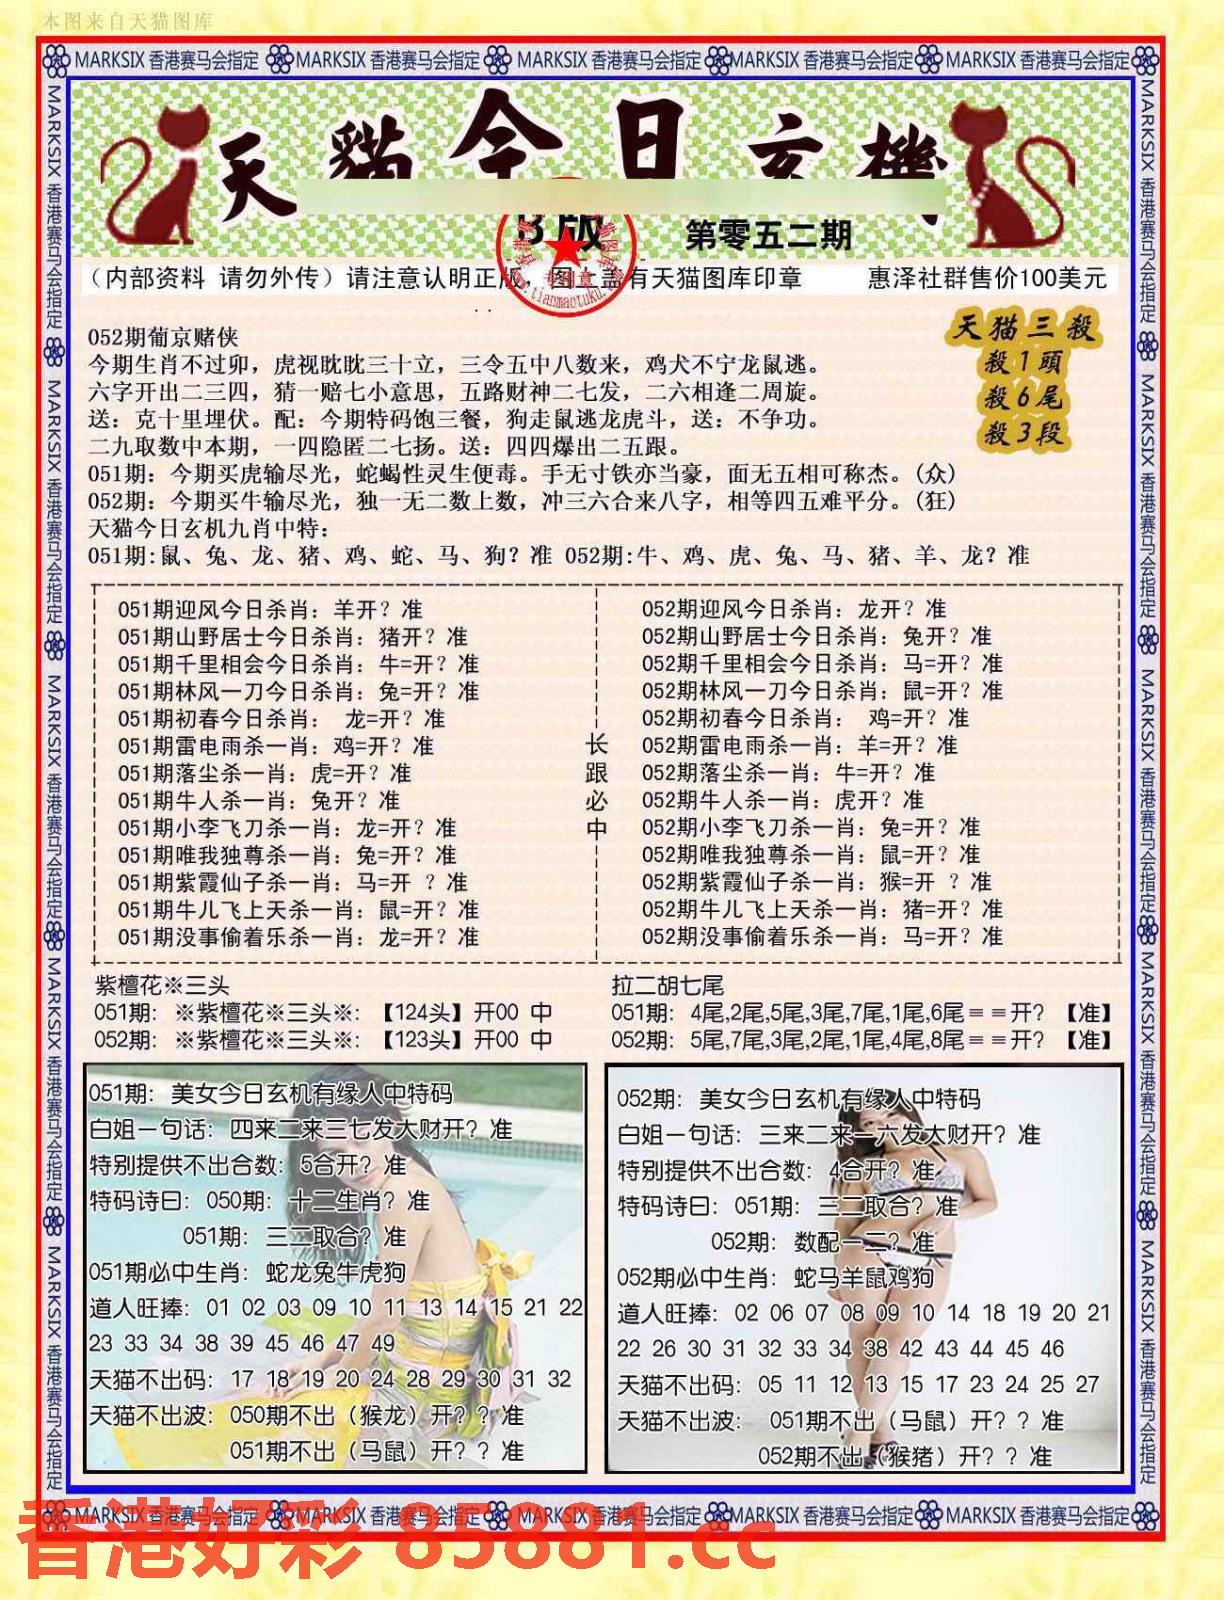 本图来自天猫图库
MARKSIX 香港赛马会指定 MARKSIX 香港赛马会指定 MARKSIX 香港赛马会指定 MARKSIX 香港赛马会指定 MARKSIX 香港赛马会指定
天貓今日玄機
B版 第零五二期
（内部资料 请勿外传）请注意认明正版 图上盖有天猫图库印章 惠泽社群售价100美元
052期葡京赌侠
今期生肖不过卯，虎视眈眈三十立，三令五中八数来，鸡犬不宁龙鼠逃。
六字开出二三四，猜一赔七小意思，五路财神二七发，二六相逢二周旋。
送：克十里埋伏。配：今期特码饱三餐，狗走鼠逃龙虎斗，送：不争功。
二九取数中本期，一四隐匿二七扬。送：四四爆出二五跟。
051期：今期买虎输尽光，蛇蝎性灵生便毒。手无寸铁亦当豪，面无五相可称杰。(众)
052期：今期买牛输尽光，独一无二数上数，冲三六合来八字，相等四五难平分。(狂)
天猫今日玄机九肖中特：
051期:鼠、兔、龙、猪、鸡、蛇、马、狗？准 052期:牛、鸡、虎、兔、马、猪、羊、龙？准
天猫三殺
殺1頭
殺6尾
殺3段
051期迎风今日杀肖：羊开？准
051期山野居士今日杀肖：猪开？准
051期千里相会今日杀肖：牛=开？准
051期林风一刀今日杀肖：兔=开？准
051期初春今日杀肖： 龙=开？准
051期雷电雨杀一肖：鸡=开？准
051期落尘杀一肖：虎=开？准
051期牛人杀一肖：兔开？准
051期小李飞刀杀一肖：龙=开？准
051期唯我独尊杀一肖：兔=开？准
051期紫霞仙子杀一肖：马=开 ？准
051期牛儿飞上天杀一肖：鼠=开？准
051期没事偷着乐杀一肖：龙=开？准
长跟必中
052期迎风今日杀肖：龙开？准
052期山野居士今日杀肖：兔开？准
052期千里相会今日杀肖：马=开？准
052期林风一刀今日杀肖：鼠=开？准
052期初春今日杀肖： 鸡=开？准
052期雷电雨杀一肖：羊=开？准
052期落尘杀一肖：牛=开？准
052期牛人杀一肖：虎开？准
052期小李飞刀杀一肖：兔=开？准
052期唯我独尊杀一肖：鼠=开？准
052期紫霞仙子杀一肖：猴=开 ？准
052期牛儿飞上天杀一肖：猪=开？准
052期没事偷着乐杀一肖：马=开？准
紫檀花※三头
051期：※紫檀花※三头※：【124头】开00 中
052期：※紫檀花※三头※：【123头】开00 中
拉二胡七尾
051期：4尾,2尾,5尾,3尾,7尾,1尾,6尾＝＝开？【准】
052期：5尾,7尾,3尾,2尾,1尾,4尾,8尾＝＝开？【准】
051期：美女今日玄机有缘人中特码
白姐一句话：四来二来三七发大财开？准
特别提供不出合数：5合开？准
特码诗曰：050期：十二生肖？准
051期：三二取合？准
051期必中生肖：蛇龙兔牛虎狗
道人旺捧：01 02 03 09 10 11 13 14 15 21 22
23 33 34 38 39 45 46 47 49
天猫不出码：17 18 19 20 24 28 29 30 31 32
天猫不出波：050期不出（猴龙）开？？准
051期不出（马鼠）开？？准
052期：美女今日玄机有缘人中特码
白姐一句话：三来二来一六发大财开？准
特别提供不出合数：4合开？准
特码诗曰：051期：三二取合？准
052期：数配一二？准
052期必中生肖：蛇马羊鼠鸡狗
道人旺捧：02 06 07 08 09 10 14 18 19 20 21
22 26 30 31 32 33 34 38 42 43 44 45 46
天猫不出码：05 11 12 13 15 17 23 24 25 27
天猫不出波： 051期不出（马鼠）开？？准
052期不出（猴猪）开？？准
MARKSIX 香港赛马会指定 MARKSIX 香港赛马会指定 MARKSIX 香港赛马会指定 MARKSIX 香港赛马会指定 MARKSIX 香港赛马会指定
香港好彩 85881.cc